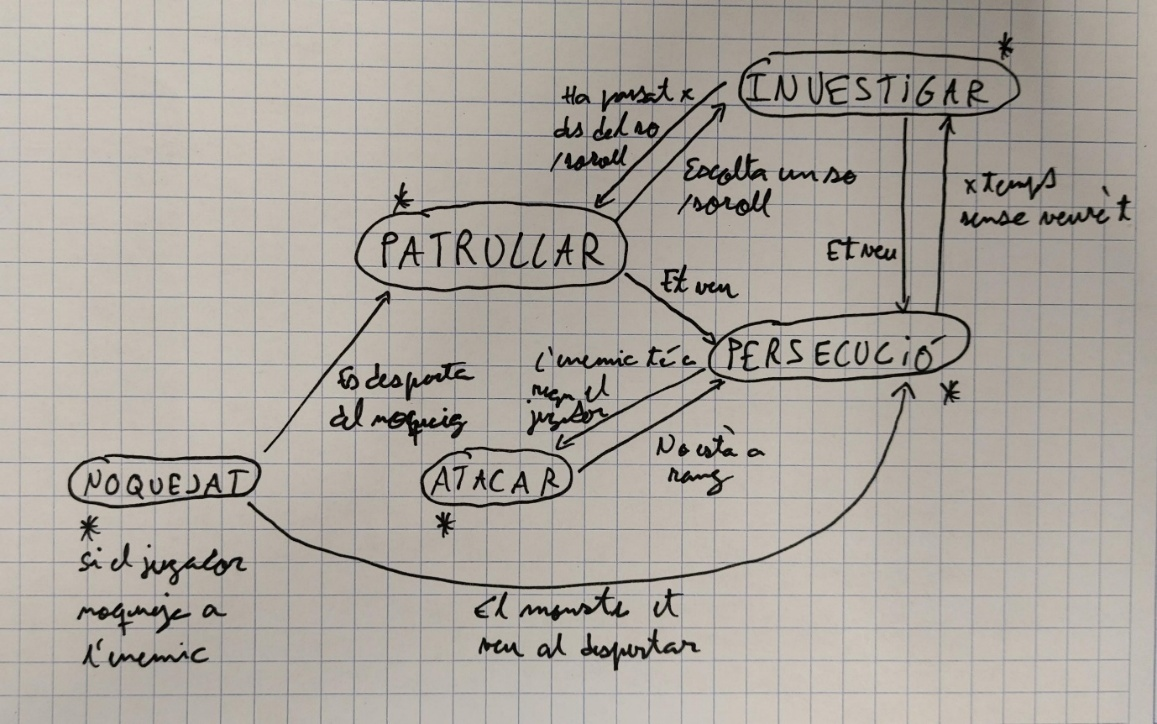 *
INVESTIGAR
Ha passat x
ds del so
/soroll
Escolta un so
/soroll
x temps
sense veure't
*
PATRULLAR
Et veu
Et veu
PERSECUCIÓ
*
L'enemic té a
rang el
jugador
Es desperta
del noqueig
No està a
rang
NOQUEJAT
*
Si el jugador
noqueja a
l'enemic
ATACAR
*
El monstre et
veu al despertar